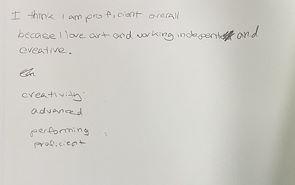 I think I am proficient overall
becase I love art and working independent and
creative.
creativity:
advanced
performing
proficient